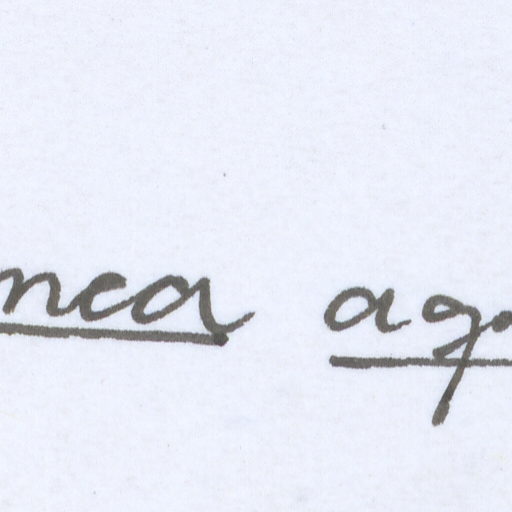 nca ag